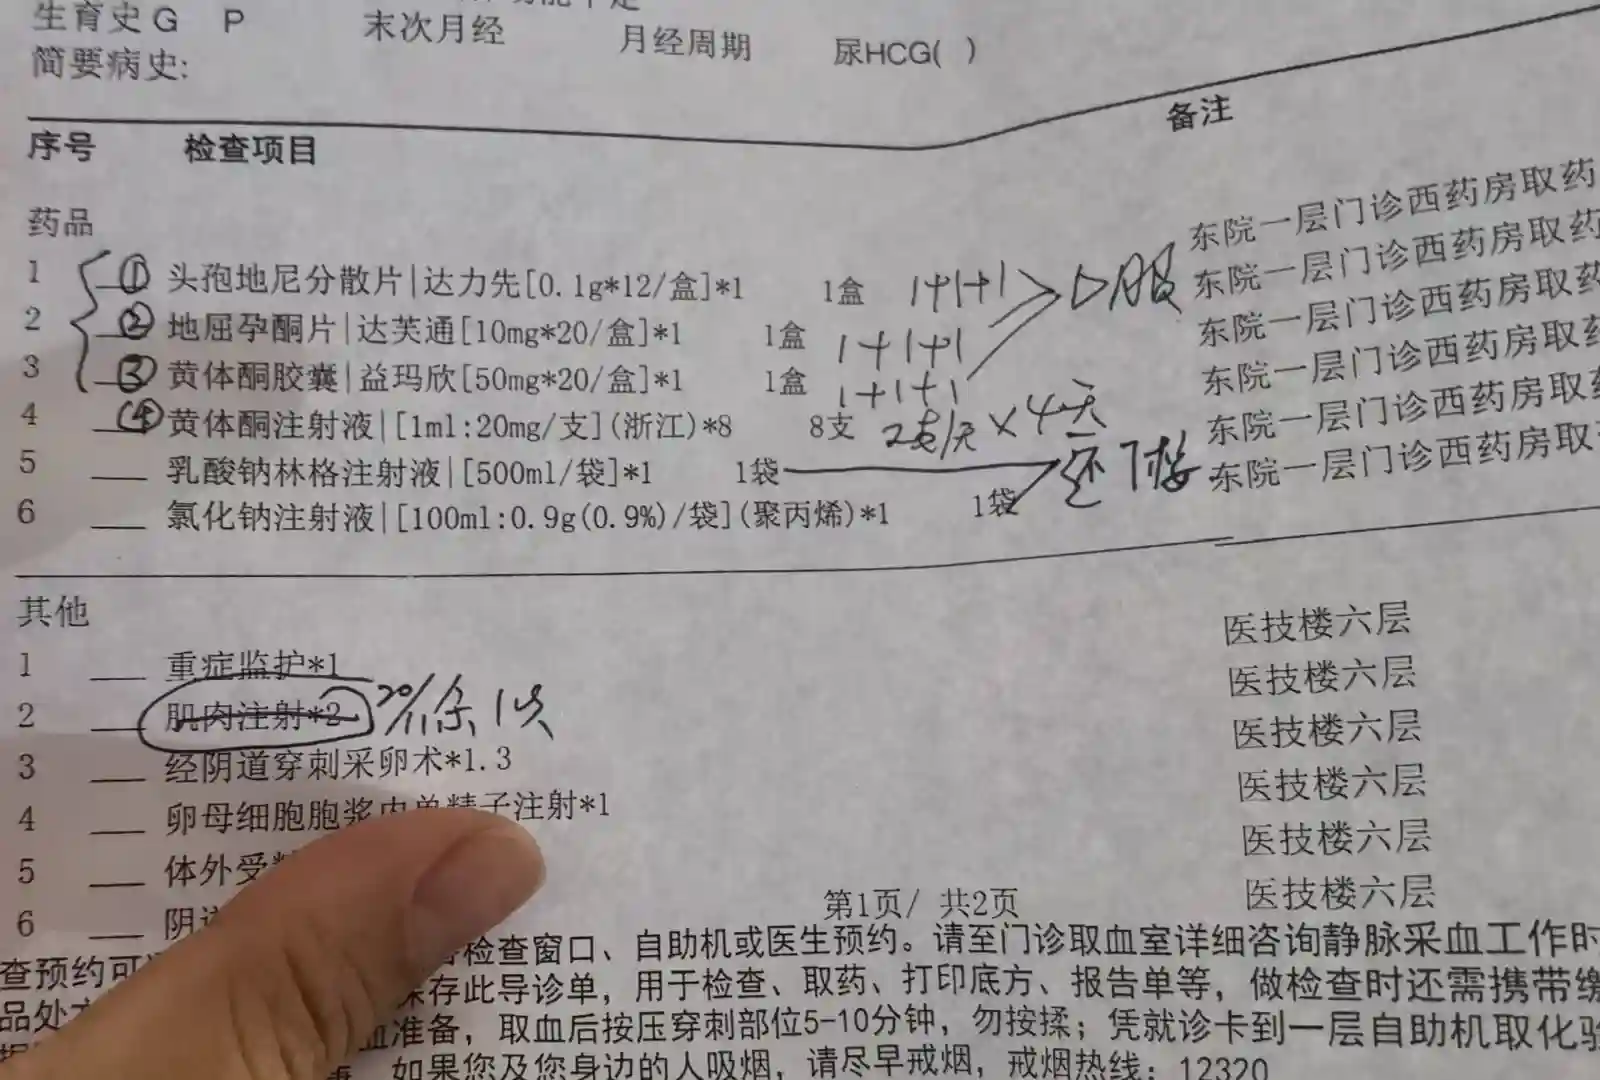 生育史G P 末次月经 月经周期 尿HCG( )
简要病史:
序号 检查项目 备注
药品
1 ① 头孢地尼分散片|达力先[0.1g*12/盒]*1 1盒 1+1+1 口服 东院一层门诊西药房取药
2 ② 地屈孕酮片|达芙通[10mg*20/盒]*1 1盒 1+1+1 东院一层门诊西药房取药
3 ③ 黄体酮胶囊|益玛欣[50mg*20/盒]*1 1盒 1+1+1 东院一层门诊西药房取药
4 ④ 黄体酮注射液|[1ml:20mg/支](浙江)*8 8支 2支/天×4天 东院一层门诊西药房取药
5 乳酸钠林格注射液|[500ml/袋]*1 1袋 还 东院一层门诊西药房取药
6 氯化钠注射液|[100ml:0.9g(0.9%)/袋](聚丙烯)*1 1袋 东院一层门诊西药房取药
其他
1 重症监护*1 医技楼六层
2 肌肉注射*2 医技楼六层
3 经阴道穿刺采卵术*1.3 医技楼六层
4 卵母细胞胞浆内单精子注射*1 医技楼六层
5 体外受精 医技楼六层
6 阴道 医技楼六层
第1页/ 共2页
查预约可 检查窗口、自助机或医生预约。请至门诊取血室详细咨询静脉采血工作时
品处方 保存此导诊单，用于检查、取药、打印底方、报告单等，做检查时还需携带缴
血准备，取血后按压穿刺部位5-10分钟，勿按揉；凭就诊卡到一层自助机取化验
如果您及您身边的人吸烟，请尽早戒烟，戒烟热线：12320